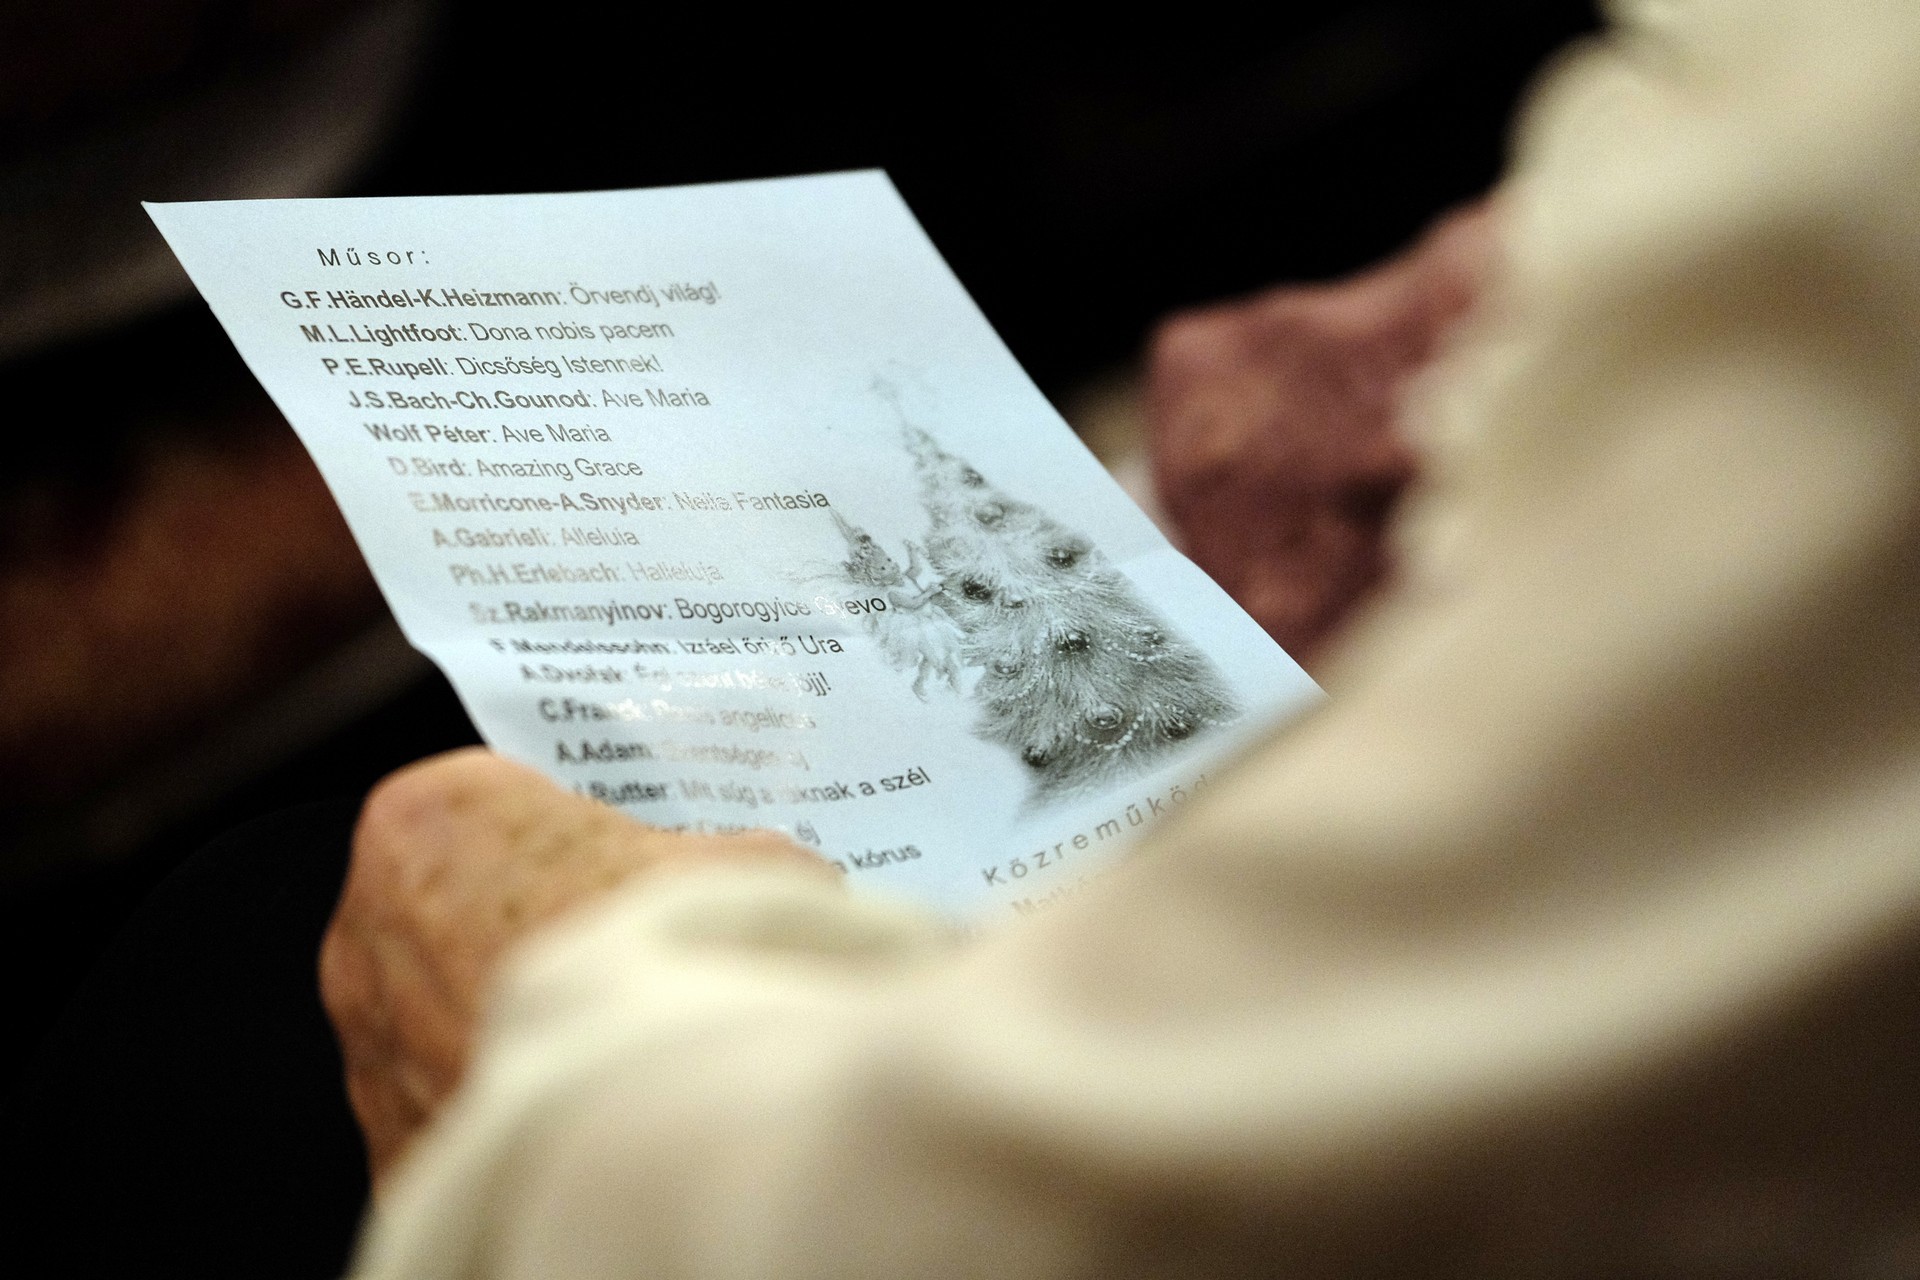 Műsor:
G.F.Händel-K.Heizmann: Örvendj világ!
M.L.Lightfoot: Dona nobis pacem
P.E.Rupell: Dicsőség Istennek!
J.S.Bach-Ch.Gounod: Ave Maria
Wolf Péter: Ave Maria
D.Bird: Amazing Grace
E.Morricone-A.Snyder: Nella Fantasia
A.Gabrieli: Alleluia
Ph.H.Erlebach: Halleluja
Sz.Rakmanyinov: Bogorogyice Gyevo
F.Mendelssohn: Izráel őriző Ura
A.Dvořak: Égi szent béke jöjj!
C.Franck: Panis angelicus
A.Adam: Szentséges éj
Rutter: Mit súg a a szél
éj
a kórus
Közreműköd